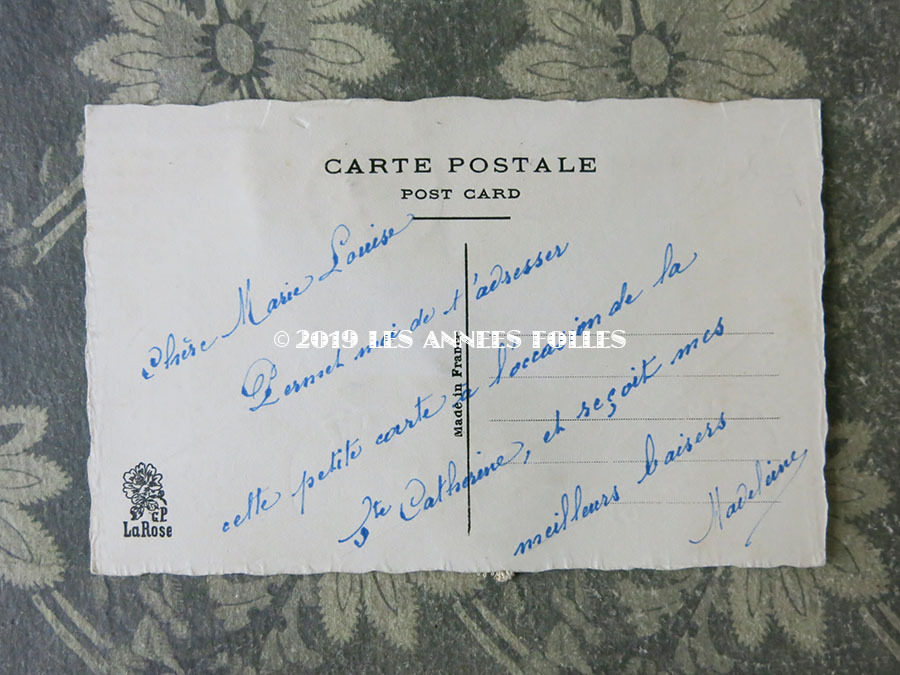 CARTE POSTALE
POST CARD
Chère Marie Louise
Permet moi de t'adresser
cette petite carte à l'occasion de la
Ste Catherine, et reçoit mes
meilleurs baisers
Madeleine
Made in France
G.P.
La Rose
© 2019 LES ANNEES FOLLES